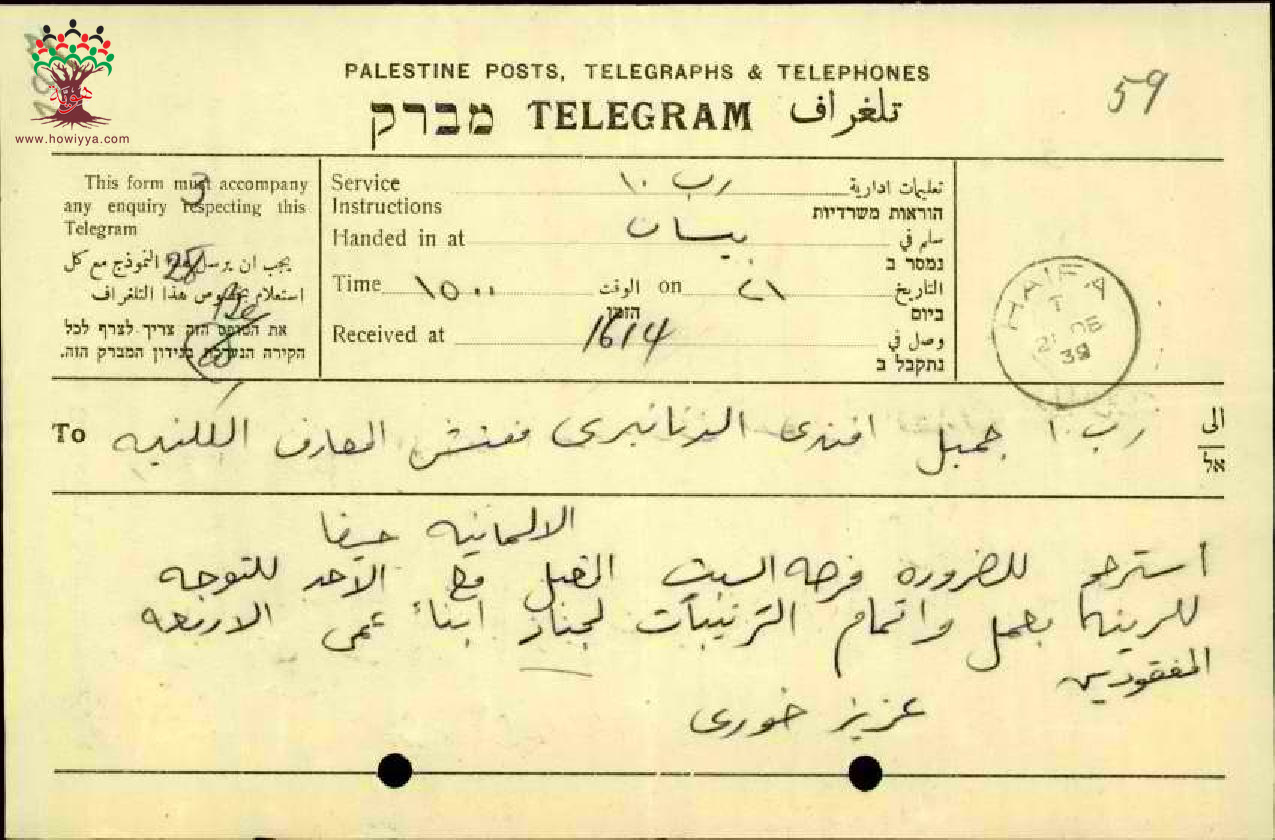 www.howiyya.com
PALESTINE POSTS, TELEGRAPHS & TELEPHONES
59
מברק TELEGRAM تلغراف
This form must accompany
any enquiry respecting this
Telegram
يجب ان يرسل هذا النموذج مع كل
استعلام بخصوص هذا التلغراف
את הטופס הזה צריך לצרף לכל
חקירה הנעשית בנידון המברק הזה.
3
28
Service رب ١٠ تعليمات ادارية
Instructions הוראות משרדיות
Handed in at بيسان سلم في
נמסר ב
Time ١٥٠٠ الوقت on ٢١ التاريخ
הזמן ביום
Received at 1614 وصل في
נתקבל ב
HAIFA
39
To رب ١٠ جميل افندى مفتش المعارف الى
אל
الالمانيه حيفا
أسترحم للضروره فرصه السبت المقبل مع الاحد للتوجه
للرينه بعمل واتمام الترتيبات لجناز ابناء عمى الاربعه
المفقودين
عزيز خورى